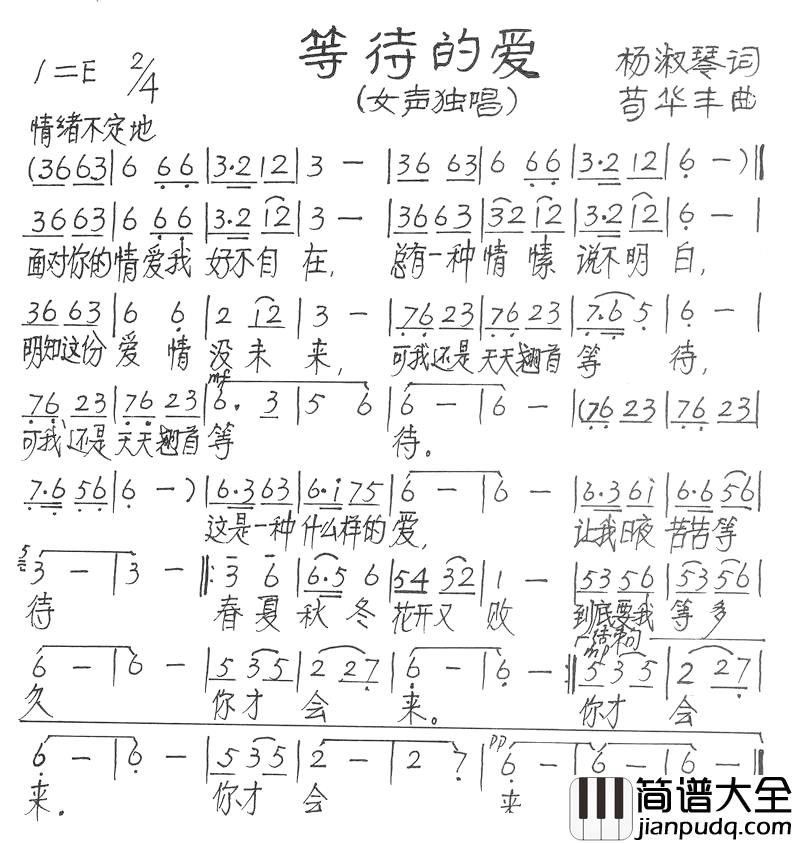 等待的爱
(女声独唱)
1=E 2/4
杨淑琴词
苟华丰曲
情绪不定地
(36 63|6 66|3·2 12|3 —|36 63|6 66|3·2 12|6 —)‖
36 63|6 66|3·2 12|3 —|36 63|32 12|3·2 12|6 —|
面对你的情爱我 好不自在, 总有一种情愫 说不明白,
36 63|6 6|2 12|3 —|76 23|76 23|7·6 5|6 —|
明知这份 爱 情 没 未 来, 可我还是 天天翘首 等 待,
mf
76 23|76 23|6· 3|5 6|6 —|6 —|(76 23|76 23|
可我还是 天天翘首 等 待。
7·6 56|6 —)|6·3 63|6·i 75|6 —|6 —|6·3 6i|6·6 56|
这是一种 什么样的 爱, 让我日夜 苦苦等
5 3 —|3 —‖:3 6|6·5 6|54 32|1 —|53 56|53 56|
待 春 夏 秋 冬 花开又 败 到底要我 等 多
结束句
mp
6 —|6 —|5 35|2 27|6 —|6 —:‖5 35|2 27|
久 你才 会 来。 你才 会
pp
6 —|6 —|5 35|2 —|2 7|6 —|6 —|6 —‖
来. 你才 会 来
简谱大全
jianpudq.com